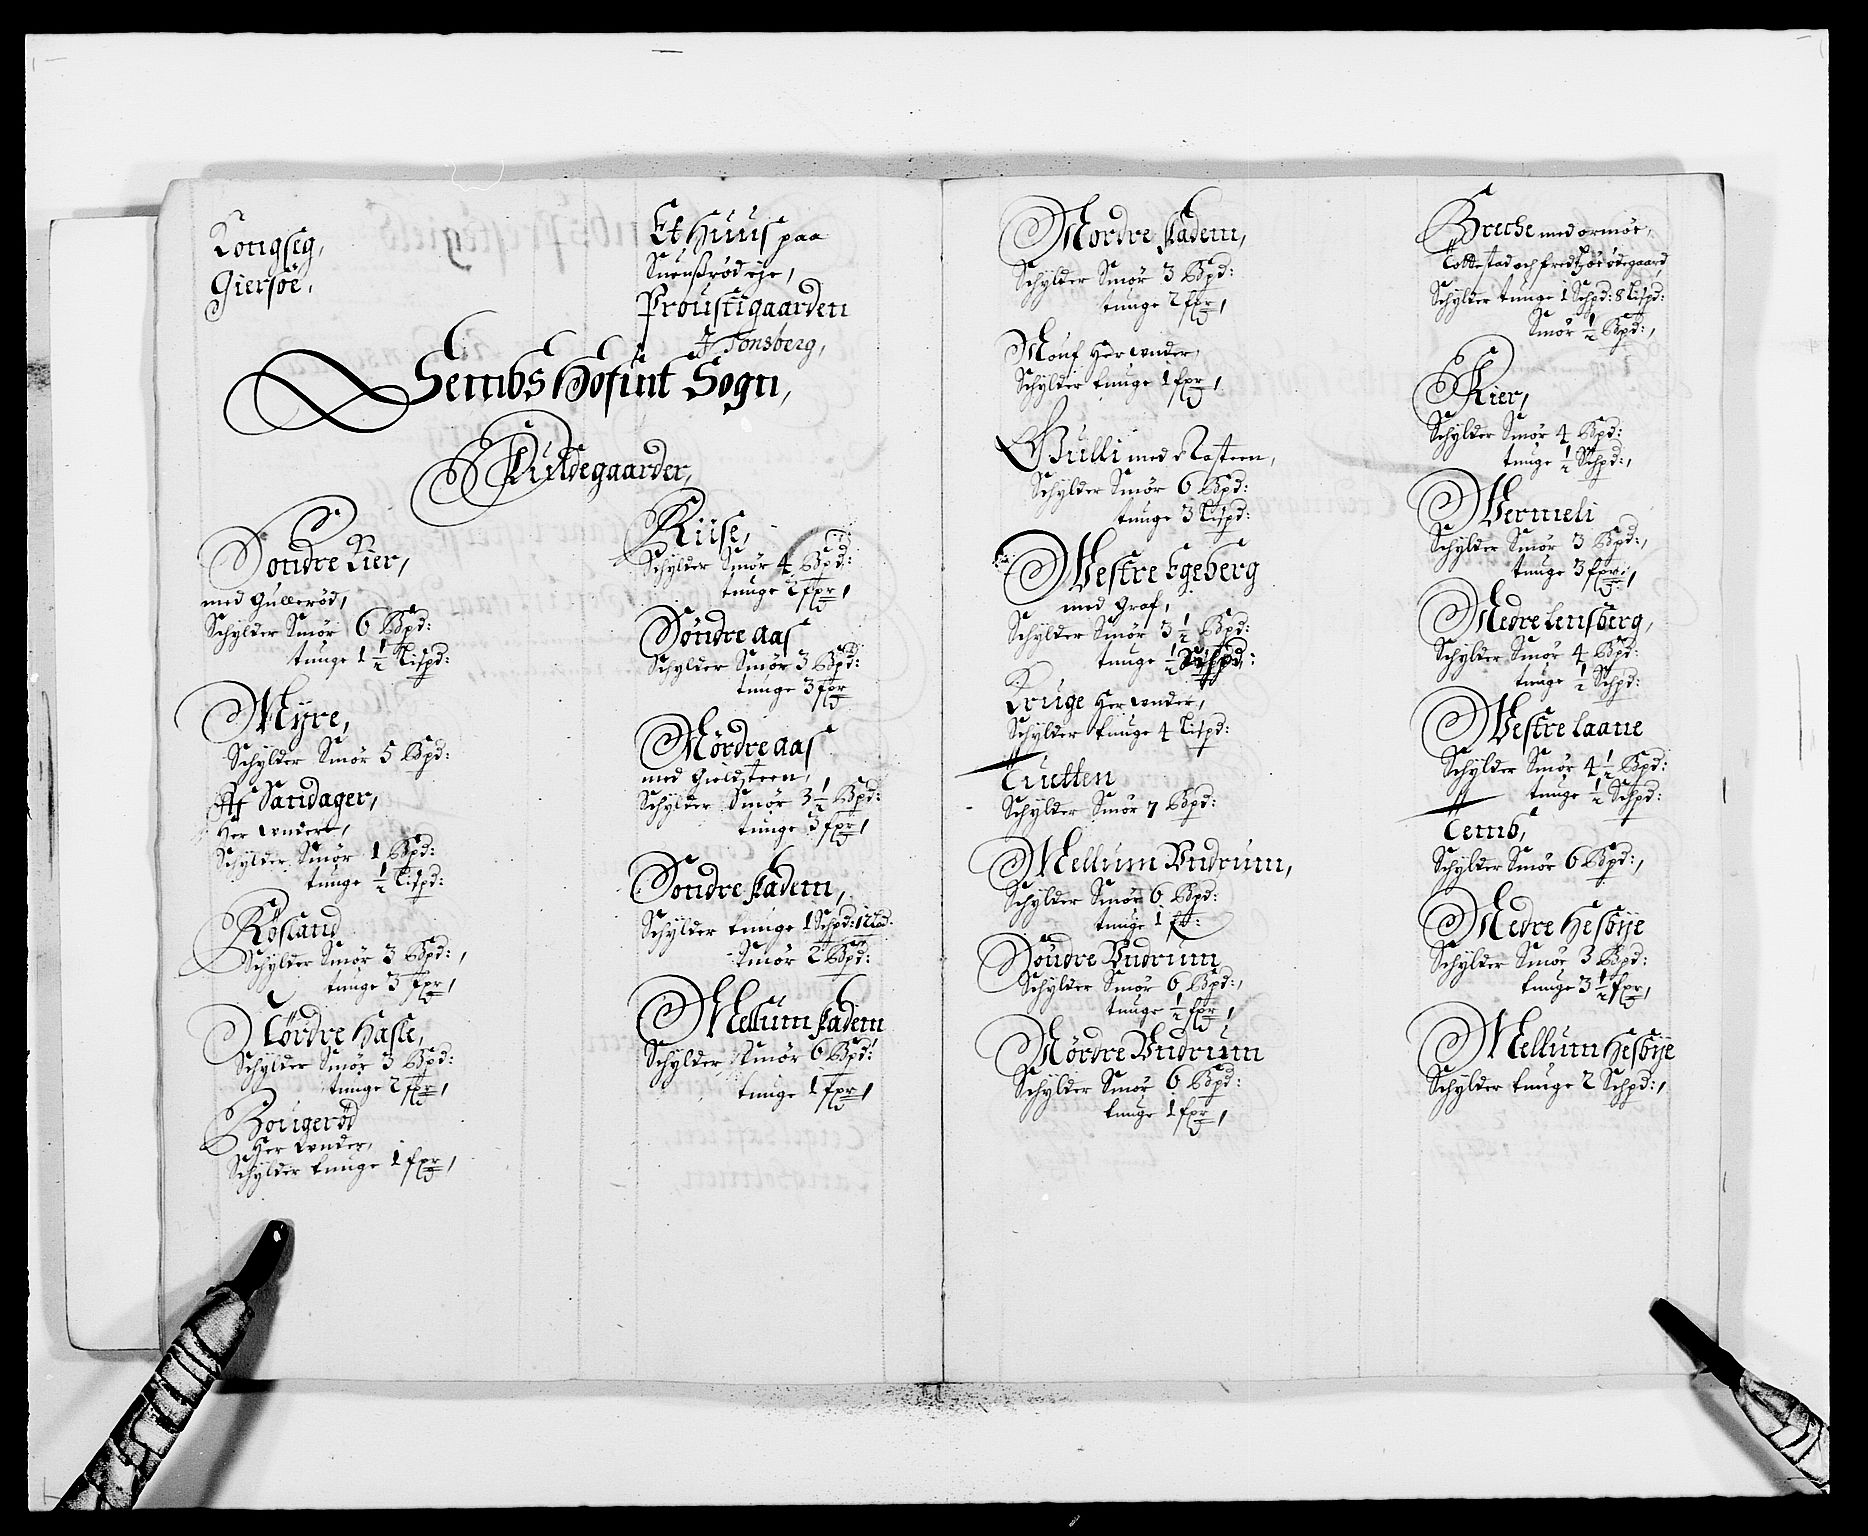 Kongseg,
Giersöe,
Et Huus paa
Suenßröd eye,
Proustigaarden
J Tonsberg,
Sembs Hofuit Sogn,
Fuldegaarder,
Sondre Kier,
med Gullerød,
Schylder Smör 6 Bpd:
tunge 1½ Lispd:
Myre,
Schylder Smör 5 Bpd:
Af Sandager,
Her wnder,
Schylder Smör 1 Bpd:
tunge ½ Lispd:
Røsland
Schylder Smör 3 Bpd:,
tunge 3 fpr,
Nördre Hasle,
Schylder Smör 3 Bpd:
tunge 2 fpr,
Bongerød
Her wnder,
Schylder tunge 1 fpr,
Riise,
Schylder Smör 4 Bpd:
tunge 2 fpr,
Söndre Aas
Schylder Smör 3 Bpd:
tunge 3 fpr
Mördre Aas
med Gieldsteen,
Schylder Smör 3½ Bpd:
tunge 3 fpr,
Sondre Fadem,
Schylder tunge 1 Schpd: 12 Ld:
Smör 2 Bpd:
Mellum Fadem
Schylder Smör 6 Bpd:
tunge 1 fpr,
Nordre Fadem,
Schylder Smör 3 Bpd:
tunge 2 fpr,
Mouf Her wnder,
Schylder tunge 1 fpr,
Gulli med Rasteen,
Schylder Smör 6 Bpd:
tunge 3 Lispd:
Vestre Egeberg
med Graf,
Schylder Smör 3½ Bpd:
tunge ½ Schpd:
Kruge Her wnder,
Schylder tunge 4 Lispd:
Tuetten
Schylder Smör 7 Bpd:
Mellum Undrum,
Schylder Smör 6 Bpd:
tunge 1 ft:
Söndre Undrum
Schylder Smör 6 Bpd:,
tunge ½ fpr,
Nördre Undrum
Schylder Smör 6 Bpd:
tunge 1 fpr,
Breche med ormöe,
Tolfestad och fredtzöe ödegaard
Schylder tunge 1 Schpd: 8 Lispd:
Smör ½ Bpd:,
Kier,
Schylder Smör 4 Bpd:
tunge ½ Schpd:,
Vermeli
Schylder Smör 3 Bpd:,
tunge 3 fpr:,
Nedre Lensberg,
Schylder Smör 4 Bpd:
tunge ½ Schpd:
Vestre Laane
Schylder Smör 4½ Bpd:
tunge ½ Schpd:
Temb,
Schylder Smör 6 Bpd:,
Nedre Hesbÿe
Schylder Smör 3 Bpd:
tunge 3½ fpr,
Mellum Hesbÿe
Schylder tunge 2 Schpd:,